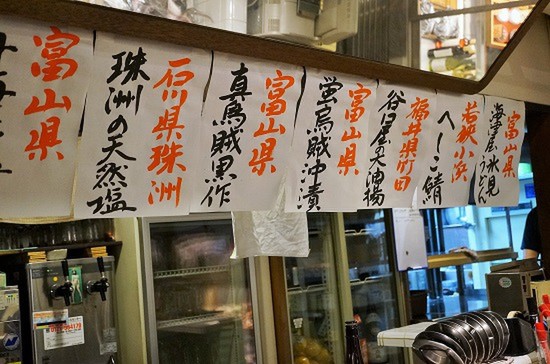 富山県
海津屋氷見うどん
若狭小浜
へしこ鯖
福井県竹田
谷口屋の大油揚
富山県
蛍烏賊沖漬
富山県
真烏賊黒作
石川県珠洲
珠洲の天然塩
富山県